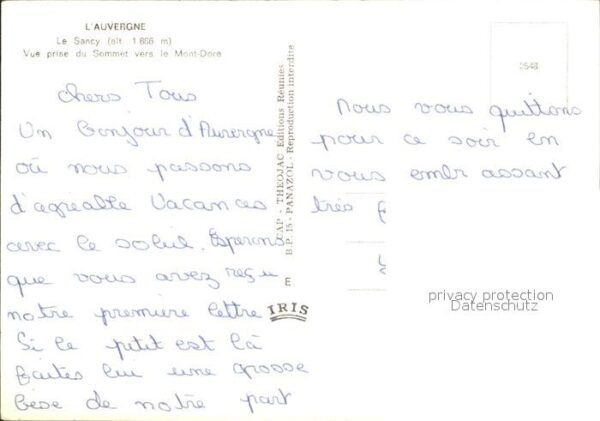 L'AUVERGNE
Le Sancy (alt. 1 886 m)
Vue prise du Sommet vers le Mont-Dore
chers Tous
Un Bonjour d'Auvergne
où nous passons
d'agréable Vacances
avec le soleil. Esperons
que vous avez reçu
notre première lettre
Si le petit est là
faites lui une grosse
bise de notre part
CAP - THEOJAC Editions Réunies
B.P. 15 - PANAZOL - Reproduction interdite
E
IRIS
2648
Nous vous quittons
pour ce soir en
vous embrassant
très
privacy protection
Datenschutz